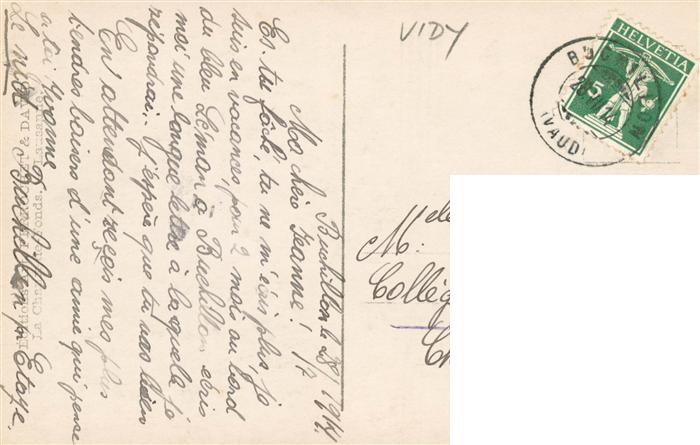 Buchillon le 28/7 1914
Ma chère Jeanne!
Es-tu fâchée, tu ne m'écris plus je
suis en vacances, pour 2 mois au bord
du bleu Léman à Buchillon, écris
moi une longue lettre à laquelle je
répondrai. J'espère que tu vas bien
En attendant reçois mes plus
tendres baisers d'une amie qui pense
à toi Yvonne
Le nid Buchillon p. Etoy
VIDY
HELVETIA
5
BUCHILLON
(VAUD)
Melle
M.
Collèg
Ch